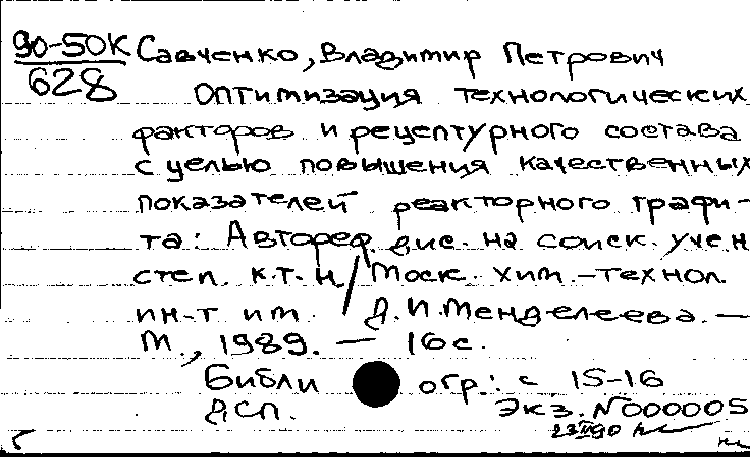 90-50К Савченко, Владимир Петрович
628
Оптимизация технологических
факторов и рецептурного состава
с целью повышения качественных
показателей реакторного графи-
та: Автореф. дис. на соиск. учен
степ. к.т.н / Моск. хим.-технол.
ин-т им. Д.И.Менделеева. —
М., 1989. — 16 с.
Библи огр.: с 15-16
ДСП. Экз. N000005
23 III 90